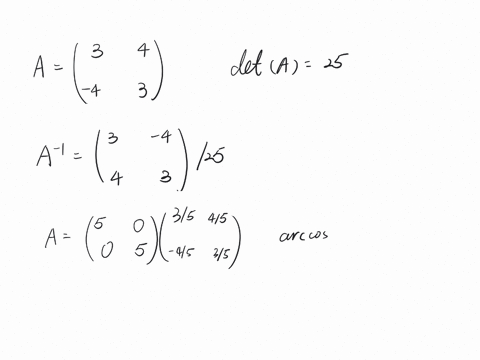 A = ( 3 4 ; -4 3 )    det(A) = 25
A⁻¹ = ( 3 -4 ; 4 3 ) / 25
A = ( 5 0 ; 0 5 ) ( 3/5 4/5 ; -4/5 3/5 )    arccos